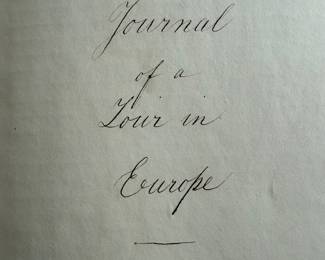 Journal
of a
Tour in
Europe